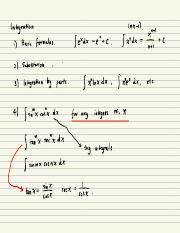 Integration (n≠-1)
1) Basic formulas. ∫e^x dx = e^x + C, ∫x^n dx = x^(n+1)/(n+1) + C
2) Substitution.
3) Integration by parts. ∫x^n ln x dx, ∫x^n e^x dx, etc
4) ∫sin^m x cos^n x dx for any integers m, n
∫tan^m x sec^n x dx trig integrals.
∫sin mx cos nx dx
tan x = sin x / cos x sec x = 1 / cos x.